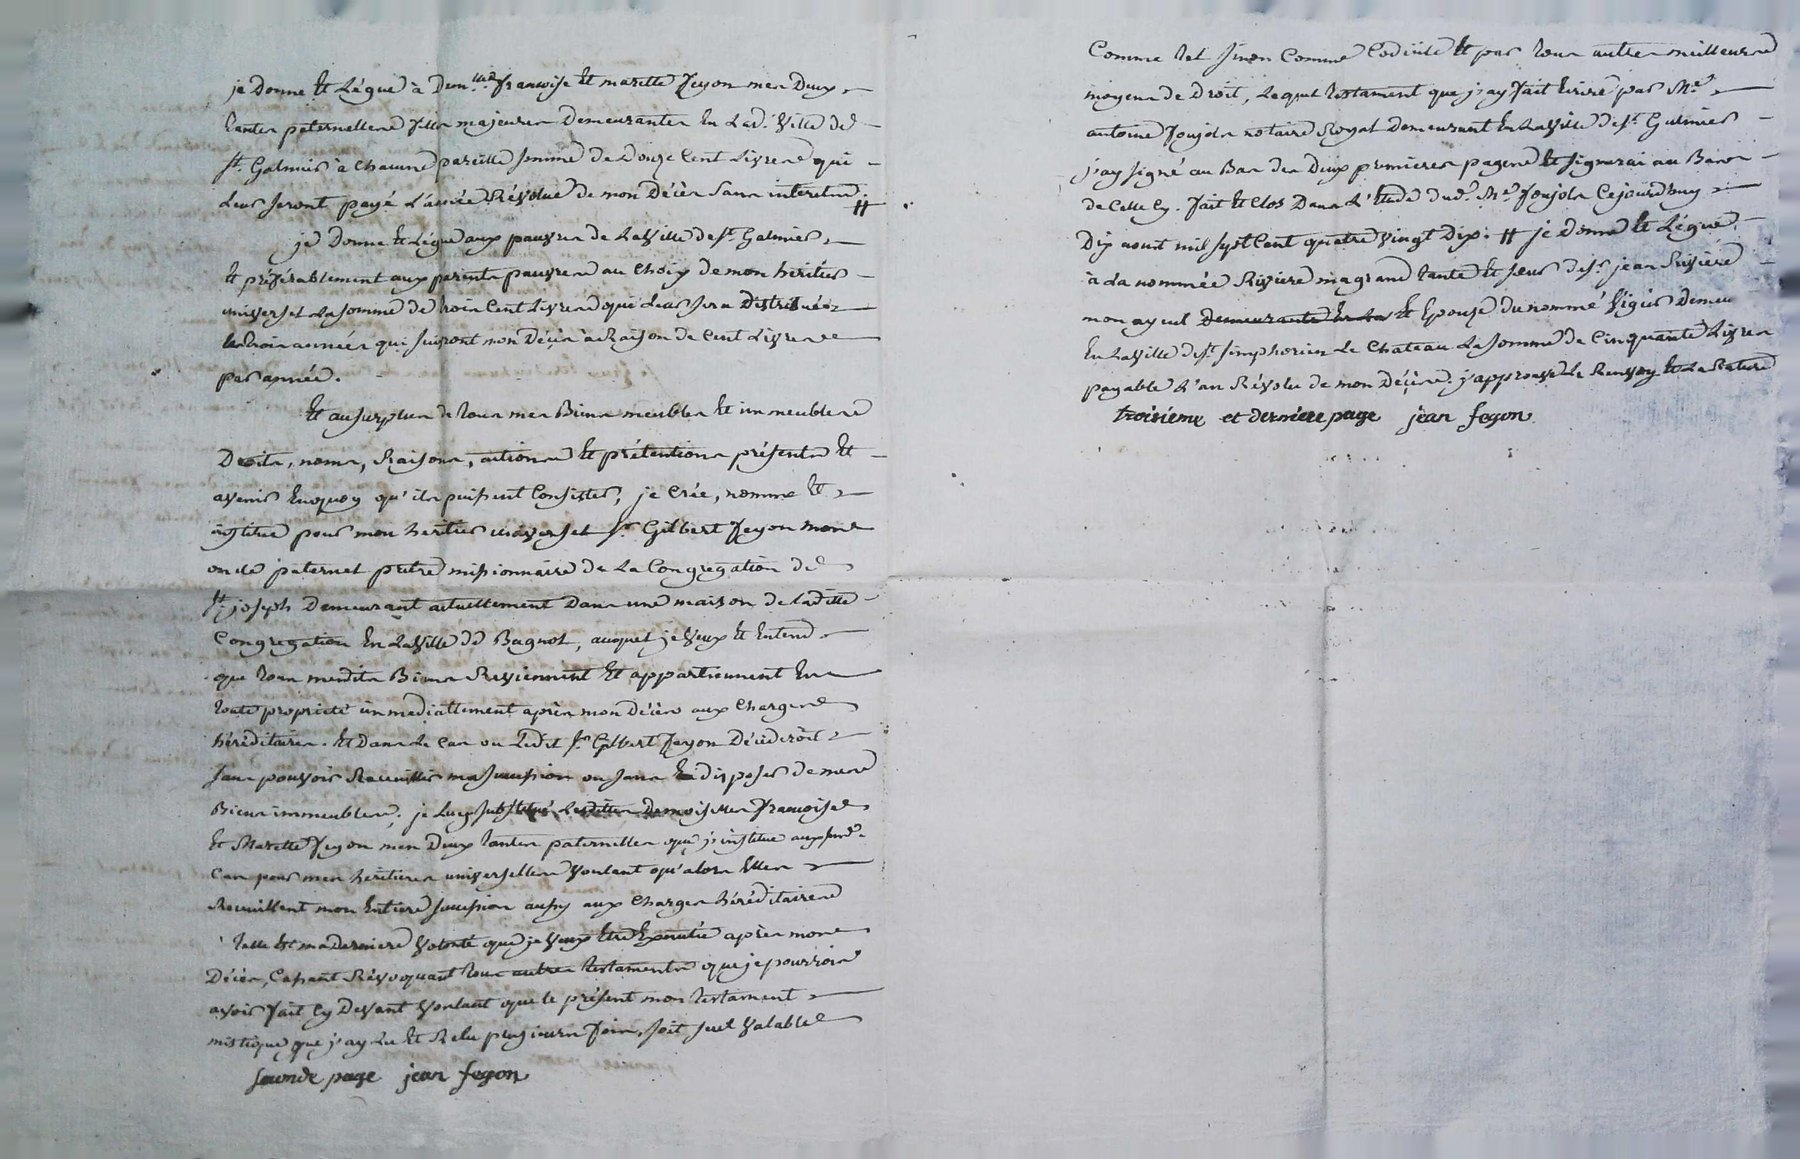 je Donne Et Légue à Dem.lles françoise Et mariette feyon mes Deux
tantes paternelles filles majeures Demeurantes En Lad.e Ville de
St. Galmier à chacune pareille somme de Douze Cent Livres qui
Leur seront payé L'année Révolue de mon Décès sans interets #
je Donne Et Légue aux pauvres de La Ville de St. Galmier
Et préférablement aux parents pauvres au choix de mon héritier
universel La somme de trois Cent Livres qui Leur sera Distribuée
les trois années qui suivront mon Décès à Raison de Cent Livres
par année.
Et au surplus de tous mes Biens meubles Et immeubles
Droits, noms, Raisons, actions Et prétentions présents Et
avenir Enquoy qu'ils puissent Consister, je Crée, nomme Et
institue pour mon héritier universel Sr. Gilbert feyon mon
oncle paternel prêtre missionnaire de La Congregation de
St. joseph Demeurant actuellement Dans une maison de ladite
Congregation En La Ville de Bagnol, auquel je Veux Et Entend
que tous mesdits Biens Reviennent Et appartiennent En
toute propriété immediattement après mon Décès aux Charges
héréditaires. Et Dans Le Cas ou Ledit Sr. Gilbert feyon Décéderoit
sans pouvoir Recueillir ma succession ou sans disposer de mes
Biens immeubles, je Luy substitue Lesdittes Demoiselles françoise
Et Mariette feyon mes Deux tantes paternelles que j'institue aux susd.
Cas pour mes héritieres universelles Voulant qu'alors Elles
Recueillent mon Entiere succession aussy aux Charges héréditaires
telle Est ma Derniere Volonté que je Veux Etre Executée après mon
Décès, Cassant Révoquant tous autres testaments que je pourrois
avoir fait Cy Devant Voulant que le présent mon testament
mistique que j'ay Lu Et Relu plusieurs fois, soit seul Valable
seconde page jean feyon
Comme tel sinon Comme Codicile Et par tous autres meilleurs
moyens de Droit, Lequel testament que j'ay fait Ecrire par Me.
antoine foujols notaire Royal Demeurant En La Ville de St. Galmier
j'ay signé au Bas des Deux premieres pages Et signerai au Bas
de Celle Cy. fait Et Clos Dans L'Etude dud. Me. foujols Cejourd'huy
Dix aout mil sept Cent quatre Vingt Dix. # je Donne Et Légue
à La nommée Riviere ma grand tante Et sœur de Sr. jean Riviere
mon ayeul Demeurante En La Et Epouze du nommé Vigier Demeu
En La Ville de St. simphorien Le Chateau La somme de Cinquante Livres
payable L'an Révolu de mon Décès. j'approuve Le Renvoy Et La Rature
troisieme et derniere page jean feyon.